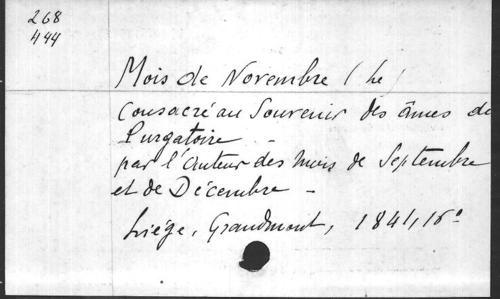 268
444
Mois de Novembre (Le)
consacré au Souvenir des âmes du
Purgatoire -
par l'auteur des mois de Septembre
et de Décembre -
Liége, Grandmont, 1841, 16°